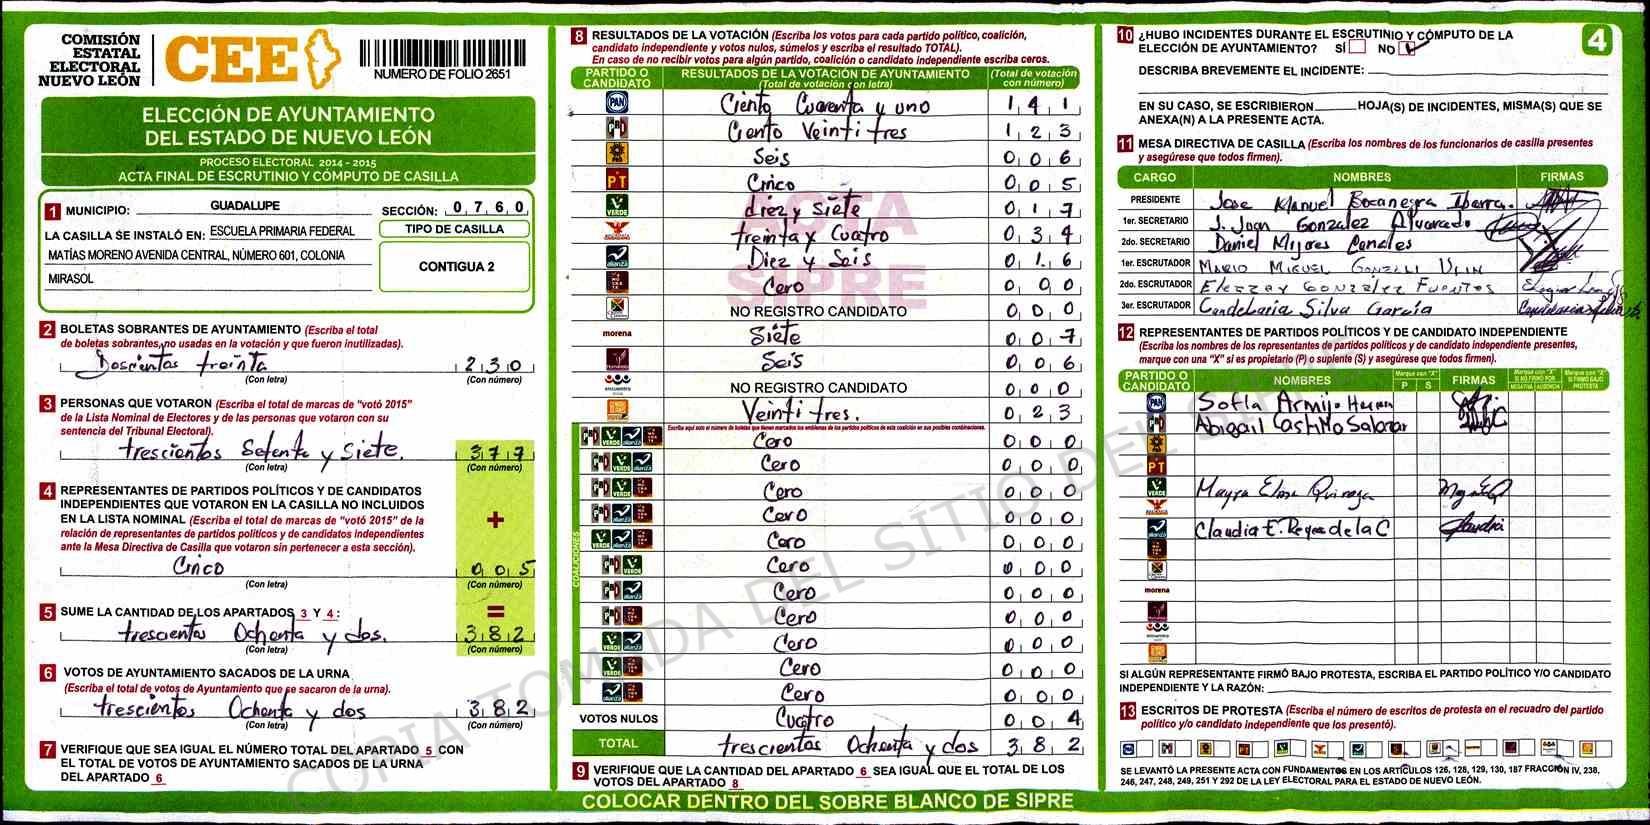 COMISIÓN
ESTATAL
ELECTORAL
NUEVO LEÓN
CEE
NUMERO DE FOLIO 2651
ELECCIÓN DE AYUNTAMIENTO
DEL ESTADO DE NUEVO LEÓN
PROCESO ELECTORAL 2014 - 2015
ACTA FINAL DE ESCRUTINIO Y CÓMPUTO DE CASILLA
1 MUNICIPIO: GUADALUPE SECCIÓN: 0 7 6 0
LA CASILLA SE INSTALÓ EN: ESCUELA PRIMARIA FEDERAL
MATÍAS MORENO AVENIDA CENTRAL, NÚMERO 601, COLONIA
MIRASOL
TIPO DE CASILLA
CONTIGUA 2
2 BOLETAS SOBRANTES DE AYUNTAMIENTO (Escriba el total
de boletas sobrantes, no usadas en la votación y que fueron inutilizadas).
Doscientas treinta 2 3 0
(Con letra) (Con número)
3 PERSONAS QUE VOTARON (Escriba el total de marcas de “votó 2015”
de la Lista Nominal de Electores y de las personas que votaron con su
sentencia del Tribunal Electoral).
trescientos Setenta y Siete. 3 7 7
(Con letra) (Con número)
4 REPRESENTANTES DE PARTIDOS POLÍTICOS Y DE CANDIDATOS
INDEPENDIENTES QUE VOTARON EN LA CASILLA NO INCLUIDOS
EN LA LISTA NOMINAL (Escriba el total de marcas de “votó 2015” de la
relación de representantes de partidos políticos y de candidatos independientes
ante la Mesa Directiva de Casilla que votaron sin pertenecer a esta sección).
+
Cinco 0 0 5
(Con letra) (Con número)
5 SUME LA CANTIDAD DE LOS APARTADOS 3 Y 4 : =
trescientos Ochenta y dos. 3 8 2
(Con letra) (Con número)
6 VOTOS DE AYUNTAMIENTO SACADOS DE LA URNA
(Escriba el total de votos de Ayuntamiento que se sacaron de la urna).
trescientos Ochenta y dos 3 8 2
(Con letra) (Con número)
7 VERIFIQUE QUE SEA IGUAL EL NÚMERO TOTAL DEL APARTADO 5 CON
EL TOTAL DE VOTOS DE AYUNTAMIENTO SACADOS DE LA URNA
DEL APARTADO 6
8 RESULTADOS DE LA VOTACIÓN (Escriba los votos para cada partido político, coalición,
candidato independiente y votos nulos, súmelos y escriba el resultado TOTAL).
En caso de no recibir votos para algún partido, coalición o candidato independiente escriba ceros.
PARTIDO O CANDIDATO RESULTADOS DE LA VOTACIÓN DE AYUNTAMIENTO (Total de votación con letra) (Total de votación con número)
PAN Ciento Cuarenta y uno 1 4 1
PRI Ciento Veinti tres 1 2 3
PRD Seis 0 0 6
PT Cinco 0 0 5
VERDE diez y siete 0 1 7
treinta y Cuatro 0 3 4
alianza Diez y Seis 0 1 6
Cero 0 0 0
NO REGISTRO CANDIDATO 0 0 0
morena Siete 0 0 7
Seis 0 0 6
encuentro NO REGISTRO CANDIDATO 0 0 0
Veinti tres. 0 2 3
Escriba aquí solo el número de boletas que tienen marcados los emblemas de los partidos políticos de esta coalición en sus posibles combinaciones.
COALICIONES
Cero 0 0 0
Cero 0 0 0
Cero 0 0 0
Cero 0 0 0
Cero 0 0 0
Cero 0 0 0
Cero 0 0 0
Cero 0 0 0
Cero 0 0 0
Cero 0 0 0
Cero 0 0 0
VOTOS NULOS Cuatro 0 0 4
TOTAL trescientos Ochenta y dos 3 8 2
9 VERIFIQUE QUE LA CANTIDAD DEL APARTADO 6 SEA IGUAL QUE EL TOTAL DE LOS
VOTOS DEL APARTADO 8
ACTA
SIPRE
COLOCAR DENTRO DEL SOBRE BLANCO DE SIPRE
10 ¿HUBO INCIDENTES DURANTE EL ESCRUTINIO Y CÓMPUTO DE LA
ELECCIÓN DE AYUNTAMIENTO? SÍ NO
4
DESCRIBA BREVEMENTE EL INCIDENTE:
EN SU CASO, SE ESCRIBIERON HOJA(S) DE INCIDENTES, MISMA(S) QUE SE
ANEXA(N) A LA PRESENTE ACTA.
11 MESA DIRECTIVA DE CASILLA (Escriba los nombres de los funcionarios de casilla presentes
y asegúrese que todos firmen).
CARGO NOMBRES FIRMAS
PRESIDENTE Jose Manuel Bocanegra Ibarra.
1er. SECRETARIO J. Juan Gonzalez Alvarado
2do. SECRETARIO Daniel Mijares Canales
1er. ESCRUTADOR Mario Miguel
2do. ESCRUTADOR Eleazar Gonzalez Fuentes
3er. ESCRUTADOR Candelaria Silva García
12 REPRESENTANTES DE PARTIDOS POLÍTICOS Y DE CANDIDATO INDEPENDIENTE
(Escriba los nombres de los representantes de partidos políticos y de candidato independiente presentes,
marque con una “X” si es propietario (P) o suplente (S) y asegúrese que todos firmen).
PARTIDO O CANDIDATO NOMBRES Marque con "X" P S FIRMAS Marque con "X" SI NO FIRMÓ POR NEGATIVA AUSENCIA Marque con "X" SI FIRMÓ BAJO PROTESTA
PAN Sofia Armijo
PRI Abigail Castillo Salazar
PRD
PT
VERDE Mayra
alianza Claudia E. Reyes de la C
morena
encuentro
SI ALGÚN REPRESENTANTE FIRMÓ BAJO PROTESTA, ESCRIBA EL PARTIDO POLÍTICO Y/O CANDIDATO
INDEPENDIENTE Y LA RAZÓN:
13 ESCRITOS DE PROTESTA (Escriba el número de escritos de protesta en el recuadro del partido
político y/o candidato independiente que los presentó).
SE LEVANTÓ LA PRESENTE ACTA CON FUNDAMENTOS EN LOS ARTÍCULOS 126, 128, 129, 130, 187 FRACCIÓN IV, 238,
246, 247, 248, 249, 251 Y 292 DE LA LEY ELECTORAL PARA EL ESTADO DE NUEVO LEÓN.
COPIA TOMADA DEL SITIO DEL SIPRE